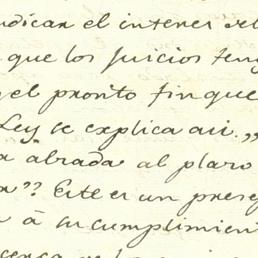 indicar el interes del
que los juicios ten
y el pronto fin que
Ley se explica asi.,,
abrada al plazo
?? Este es un pres
à su cumplimien